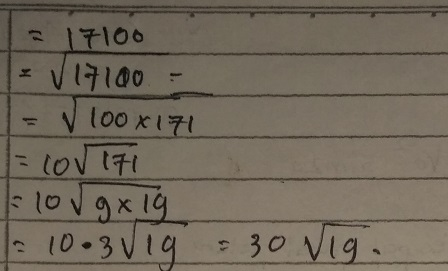 = 17100
= √17100 =
= √100×171
= 10√171
= 10√9×19
= 10•3√19 = 30 √19.